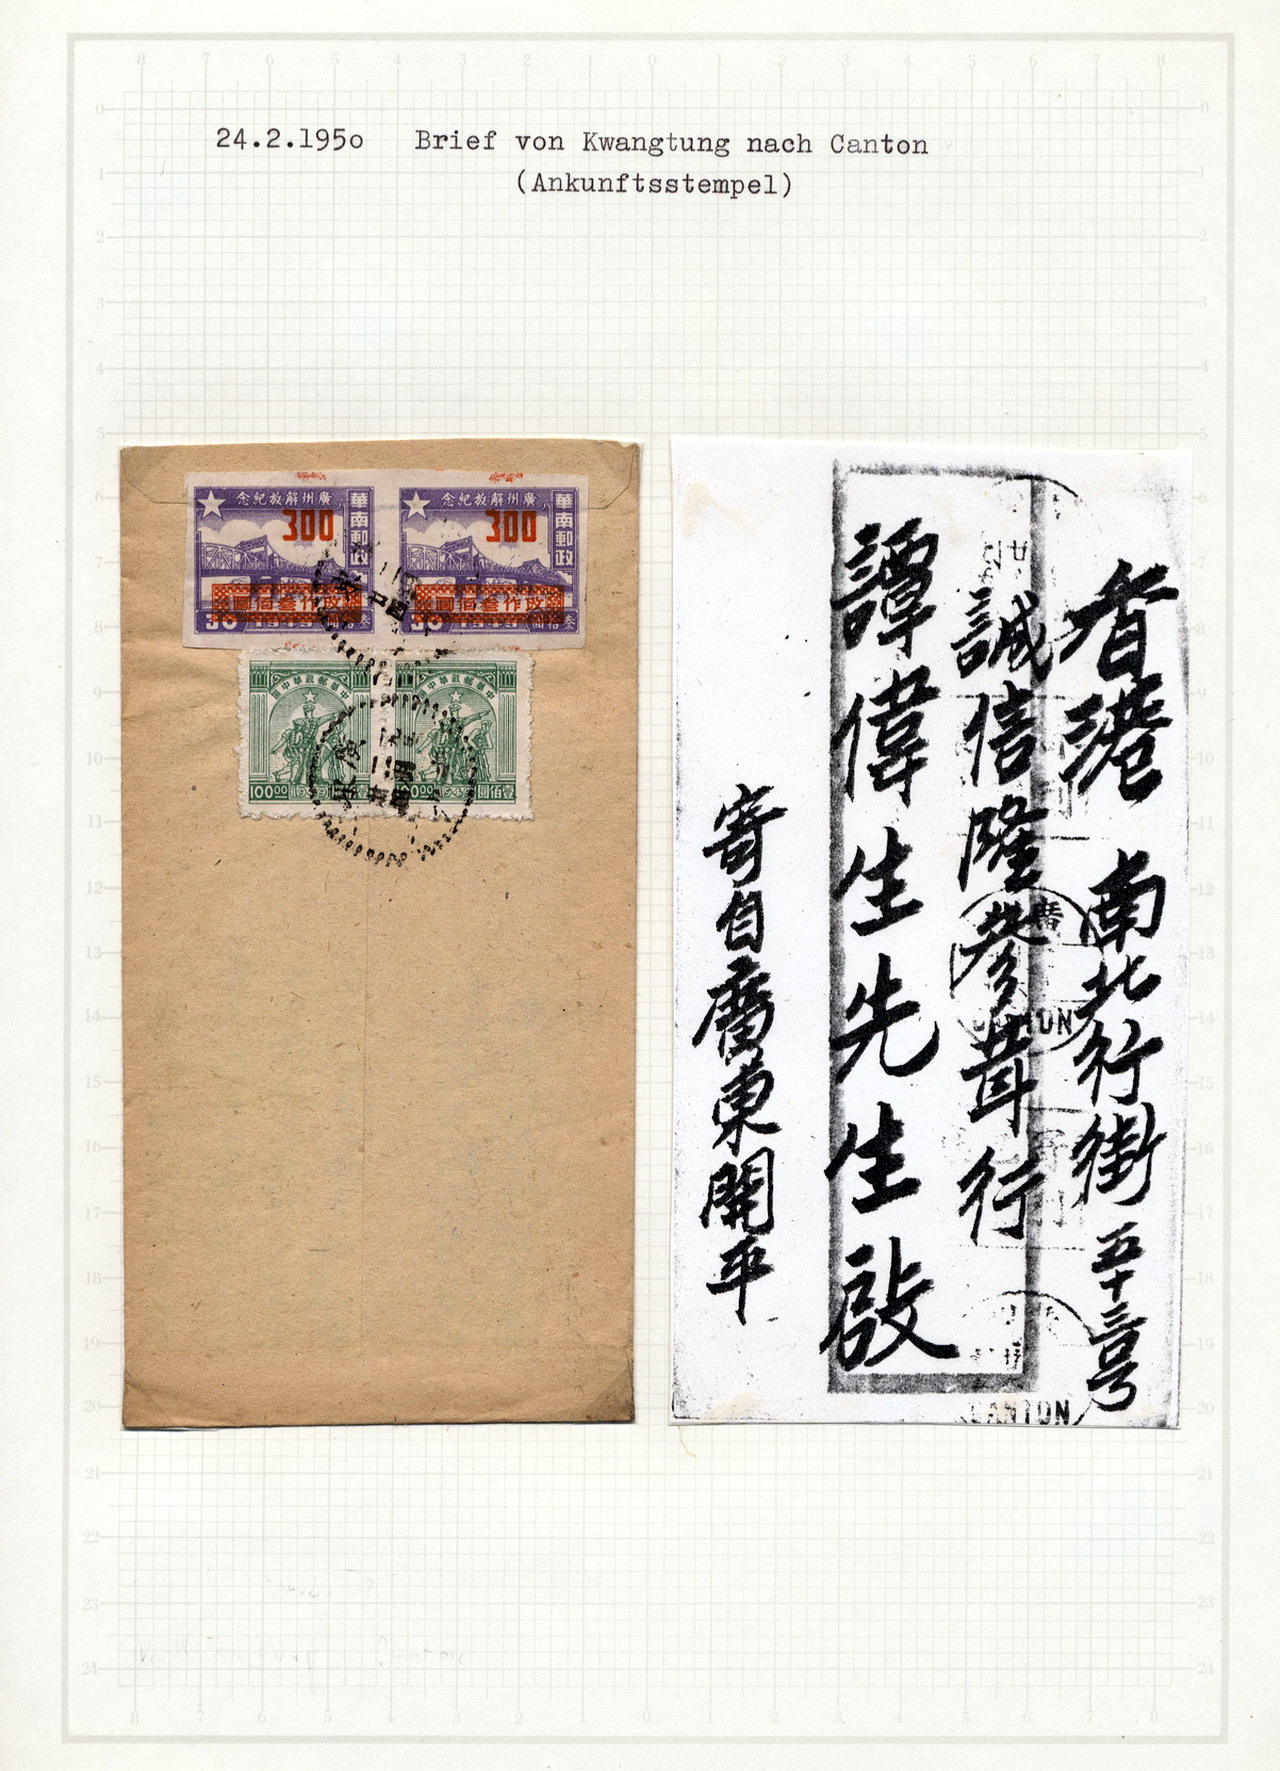 24.2.195o Brief von Kwangtung nach Canton
(Ankunftsstempel)
廣州解放紀念
華南郵政
300
改作叁佰圓
廣州解放紀念
華南郵政
300
改作叁佰圓
中華郵政華中區
100.00
壹佰圓
中華郵政華中區
壹佰圓
香港 南北行街 五十三号
誠信隆參茸行
譚偉生先生啟
寄自廣東開平
廣
CANTON